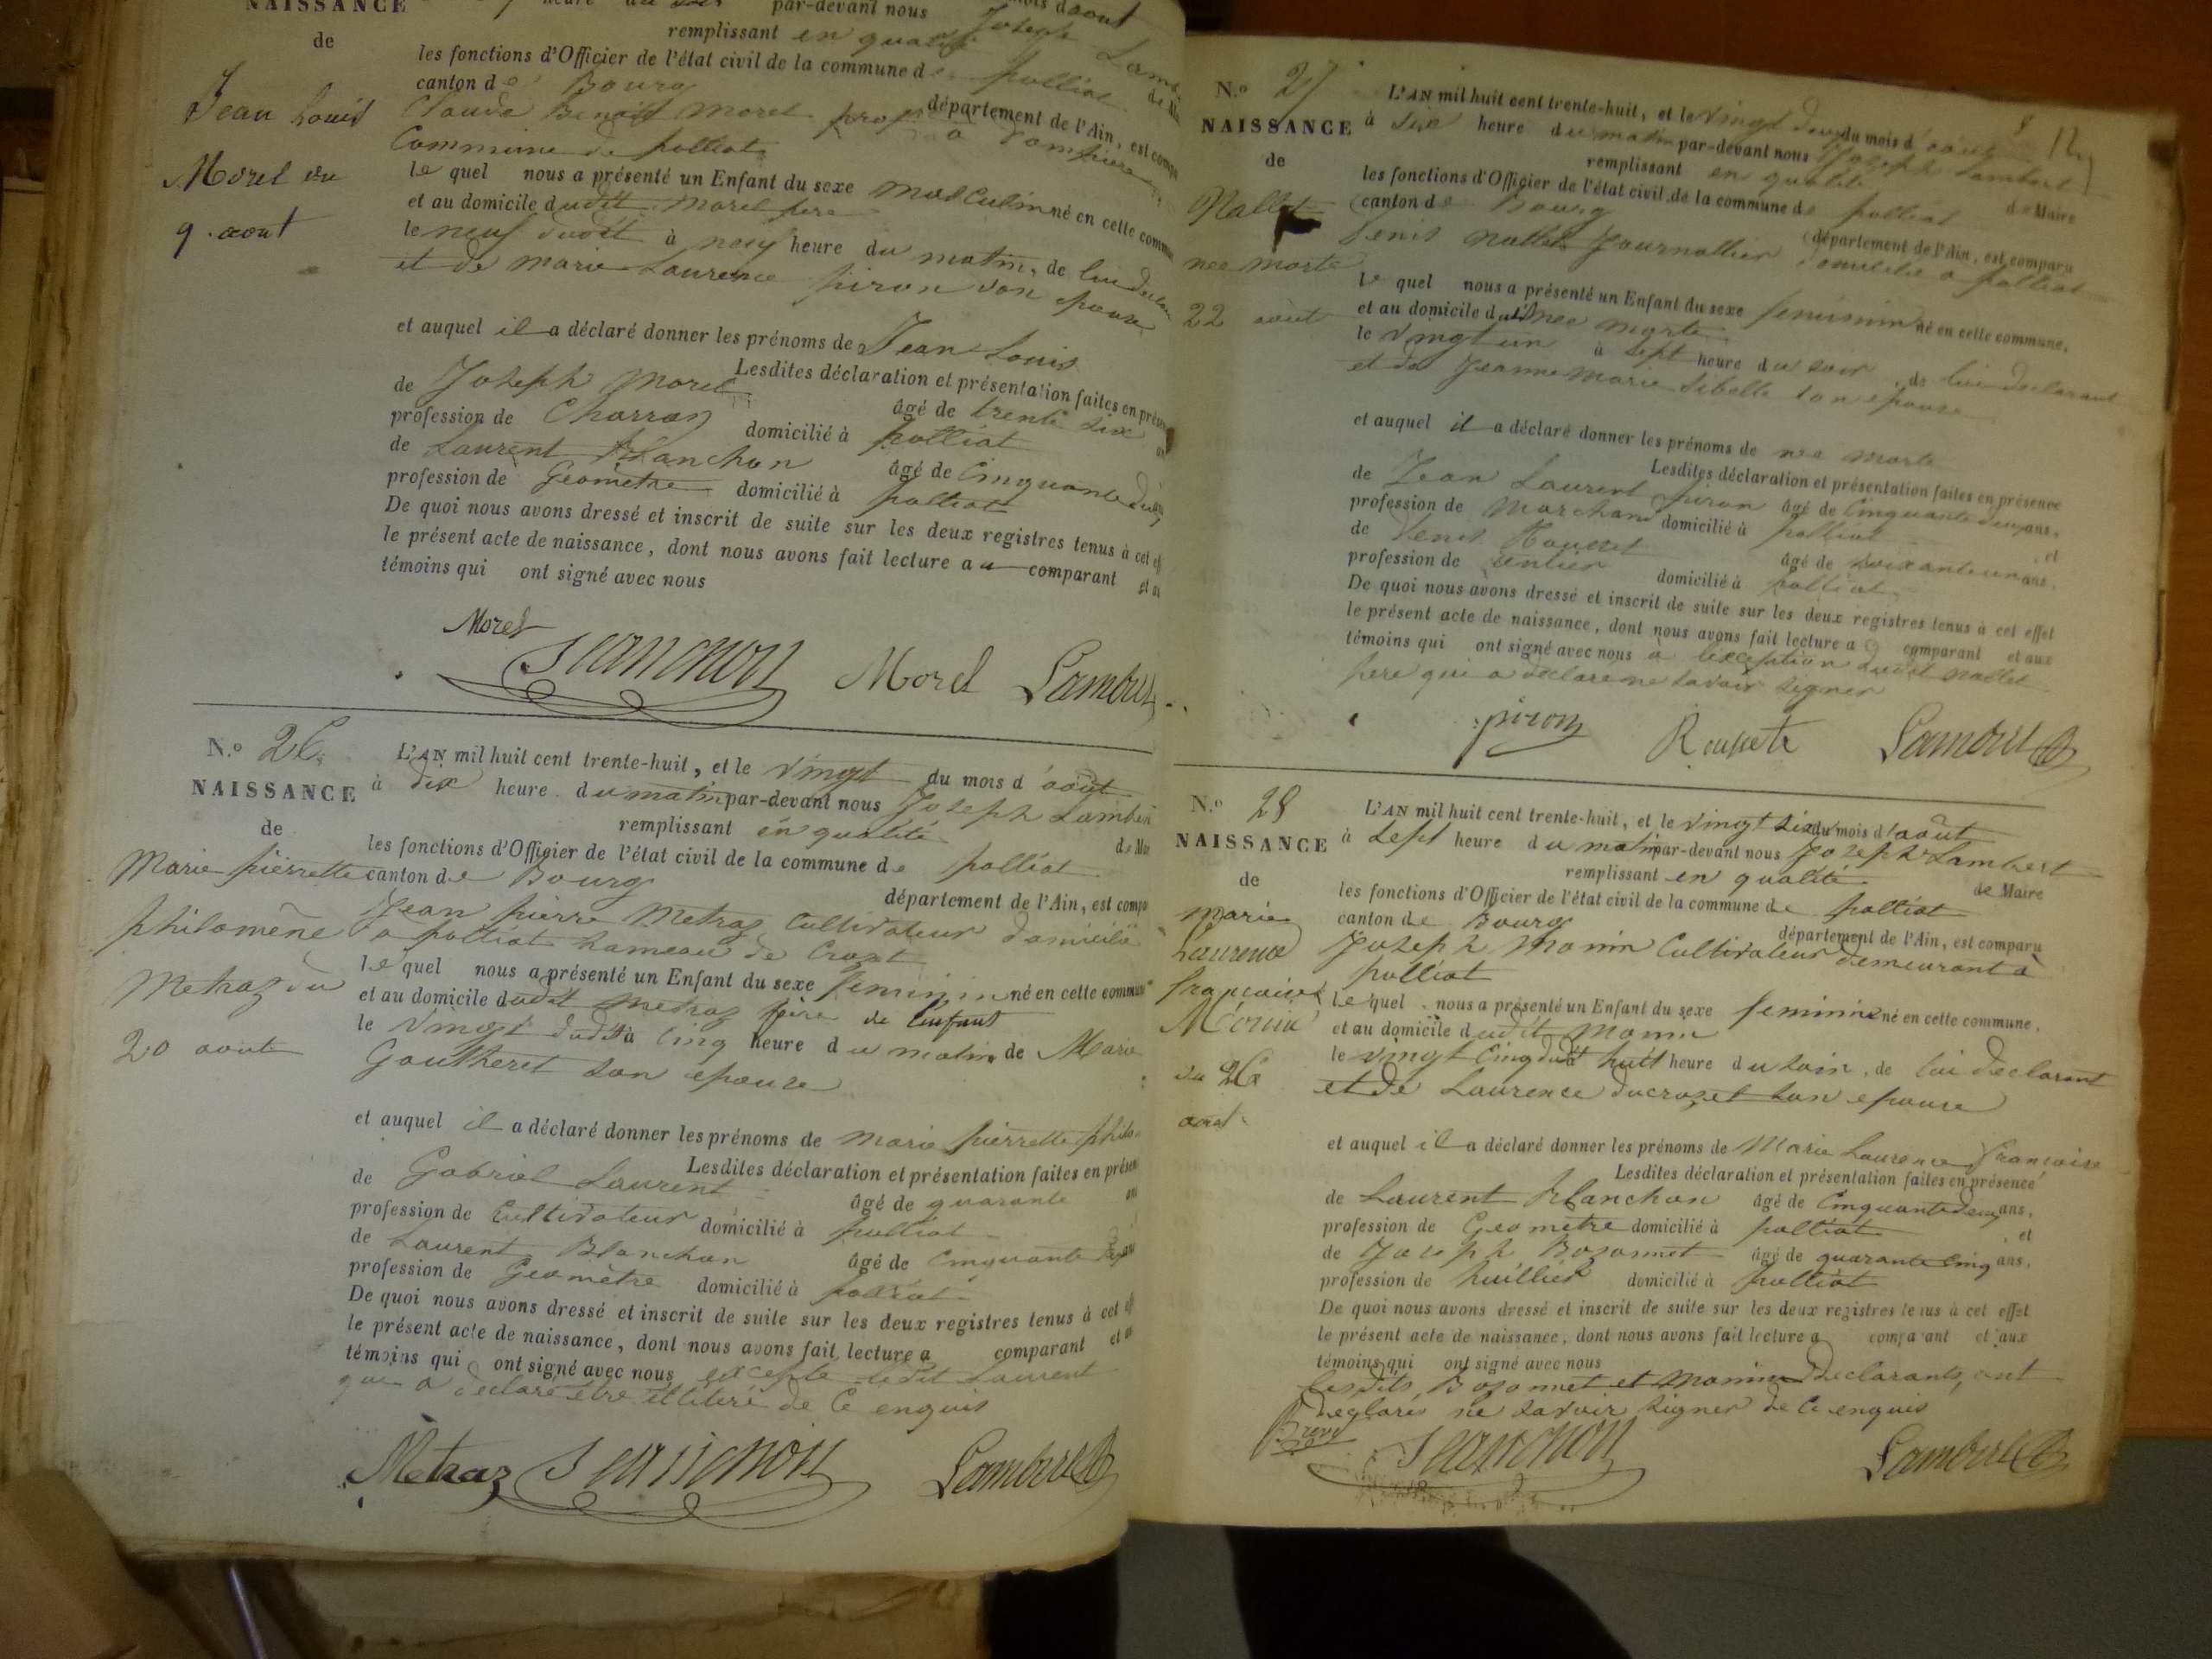 NAISSANCE
de
Jean Louis
Morel du
9. aout
heure du soir par-devant nous Joseph
remplissant en qualité
les fonctions d'Officier de l'état civil de la commune de polliat
canton de Bourg
département de l'Ain, est
Claude Benoit Morel
Commune de polliat
le quel nous a présenté un Enfant du sexe masculin né en cette
et au domicile dudit Morel pere
le neuf dudit à neuf heure du matin, de lui
et de marie Laurence piron son epouse
et auquel il a déclaré donner les prénoms de Jean Louis
Lesdites déclaration et présentation faites en
de Joseph Morel âgé de trente six
profession de Charron domicilié à polliat
de Laurent Blanchon âgé de Cinquante deux
profession de Géomètre domicilié à polliat
De quoi nous avons dressé et inscrit de suite sur les deux registres tenus à cet
le présent acte de naissance, dont nous avons fait lecture au comparant et
témoins qui ont signé avec nous
Morel
Morel
N.º 26
NAISSANCE
de
Marie pierrette
philomène
Metraz du
20 aout
L'AN mil huit cent trente-huit, et le vingt du mois d'août
à dix heure du matin par-devant nous Joseph Lambert
remplissant en qualité
les fonctions d'Officier de l'état civil de la commune de polliat
canton de Bourg
département de l'Ain, est
Jean pierre Metraz Cultivateur domicilié
a polliat hameau de
le quel nous a présenté un Enfant du sexe feminin né en cette
et au domicile dudit metraz père de l'enfant
le vingt dudit à cinq heure du matin de Marie
Goutheret son epouse
et auquel il a déclaré donner les prénoms de marie pierrette philo
Lesdites déclaration et présentation faites en
de Gabriel Laurent âgé de quarante
profession de Cultivateur domicilié à polliat
de Laurent Blanchon âgé de Cinquante
profession de Géomètre domicilié à polliat
De quoi nous avons dressé et inscrit de suite sur les deux registres tenus à cet
le présent acte de naissance, dont nous avons fait lecture a comparant et
témoins qui ont signé avec nous excepté ledit Laurent
qui a declaré etre illitéré de Ce enquis
Metraz
Lambert
N.º 27
NAISSANCE
de
Nallet
nee morte
22 août
L'AN mil huit cent trente-huit, et le vingt deux du mois d'aout
à six heure du matin par-devant nous Joseph Lambert
remplissant en qualité de Maire
les fonctions d'Officier de l'état civil de la commune de polliat
canton de Bourg
département de l'Ain, est comparu
Denis nallet Journallier domicilié a polliat
le quel nous a présenté un Enfant du sexe feminin né en cette commune,
et au domicile dudit nee morte
le vingt un à sept heure du soir, de lui declarant
et de Jeanne Marie Sibelle son epouse
et auquel il a déclaré donner les prénoms de nee morte
Lesdites déclaration et présentation faites en présence
de Jean Laurent piron âgé de Cinquante deux ans,
profession de Marchand domicilié à polliat et
de Denis Rousset âgé de soixante un ans,
profession de rentier domicilié à polliat
De quoi nous avons dressé et inscrit de suite sur les deux registres tenus à cet effet
le présent acte de naissance, dont nous avons fait lecture a comparant et aux
témoins qui ont signé avec nous a l'exception dudit nallet
pere qui a declare ne savoir signer
piron
Lambert
N.º 28
NAISSANCE
de
marie
Laurence
françoise
Monin
du 26
aout
L'AN mil huit cent trente-huit, et le vingt six du mois d'août
à sept heure du matin par-devant nous Joseph Lambert
remplissant en qualité de Maire
les fonctions d'Officier de l'état civil de la commune de polliat
canton de Bourg
département de l'Ain, est comparu
Joseph Monin Cultivateur demeurant à
polliat
le quel nous a présenté un Enfant du sexe feminin né en cette commune,
et au domicile dudit Monin
le vingt Cinq dudit à huit heure du soir, de lui declarant
et de Laurence ducrozet son epouse
et auquel il a déclaré donner les prénoms de Marie Laurence françoise
Lesdites déclaration et présentation faites en présence
de Laurent Blanchon âgé de Cinquante deux ans,
profession de Geometre domicilié à polliat et
de Joseph Bozonnet âgé de quarante Cinq ans,
profession de huillier domicilié à polliat
De quoi nous avons dressé et inscrit de suite sur les deux registres tenus à cet effet
le présent acte de naissance, dont nous avons fait lecture a comparant et aux
témoins qui ont signé avec nous
lesdits Bozonnet et Monin declarants, ont
declaré ne savoir signer de Ce enquis
Lambert